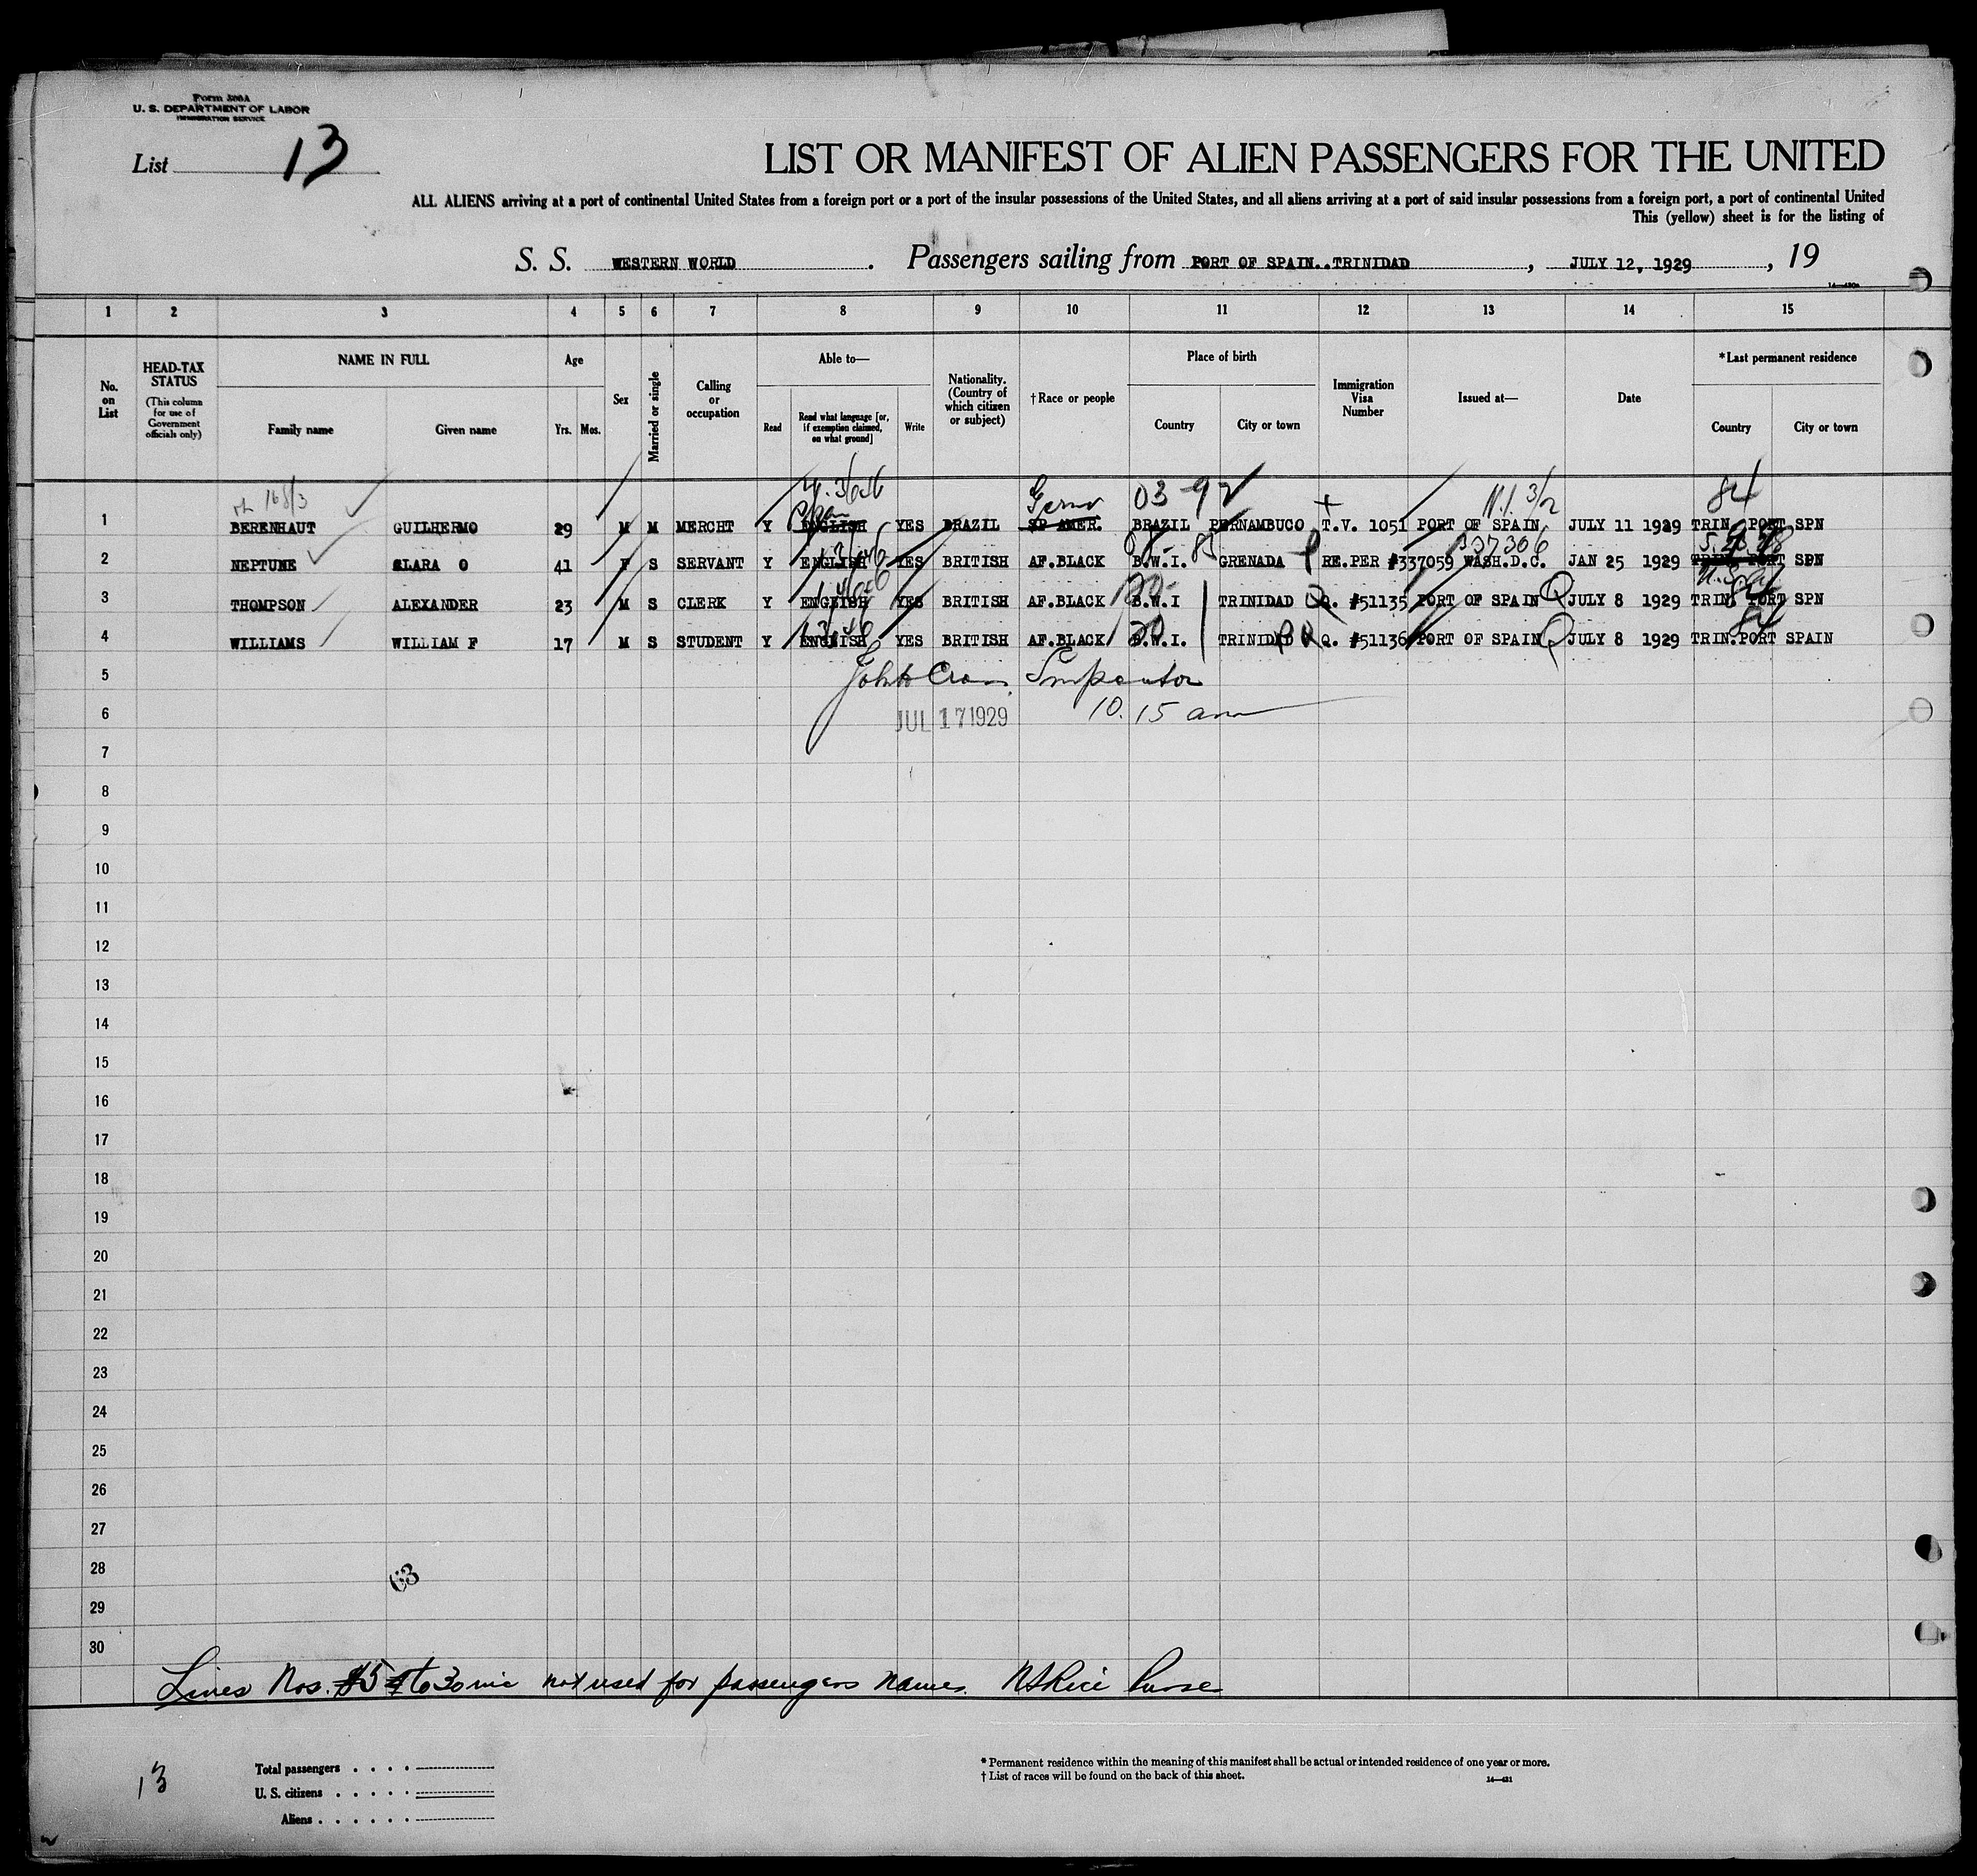 Form 500A
U. S. DEPARTMENT OF LABOR
IMMIGRATION SERVICE
List 13
LIST OR MANIFEST OF ALIEN PASSENGERS FOR THE UNITED
ALL ALIENS arriving at a port of continental United States from a foreign port or a port of the insular possessions of the United States, and all aliens arriving at a port of said insular possessions from a foreign port, a port of continental United
This (yellow) sheet is for the listing of
S. S. WESTERN WORLD . Passengers sailing from PORT OF SPAIN..TRINIDAD , JULY 12, 1929 , 19
1 2 3 4 5 6 7 8 9 10 11 12 13 14 15
No. on List
HEAD-TAX STATUS (This column for use of Government officials only)
NAME IN FULL
Family name Given name
Age
Yrs. Mos.
Sex
Married or single
Calling or occupation
Able to—
Read
Read what language [or, if exemption claimed, on what ground]
Write
Nationality. (Country of which citizen or subject)
† Race or people
Place of birth
Country City or town
Immigration Visa Number
Issued at—
Date
* Last permanent residence
Country City or town
165/3 Span Germ 03-92 84
1 BERENHAUT GUILHERMO 29 M M MERCHT Y ENGLISH YES BRAZIL SP AMER. BRAZIL PERNAMBUCO T.V. 1051 PORT OF SPAIN JULY 11 1929 TRIN. PORT SPN
337306
2 NEPTUNE CLARA O 41 F S SERVANT Y ENGLISH YES BRITISH AF.BLACK B.W.I. GRENADA RE.PER #337059 WASH.D.C. JAN 25 1929 TRIN. PORT SPN
3 THOMPSON ALEXANDER 23 M S CLERK Y ENGLISH YES BRITISH AF.BLACK B.W.I TRINIDAD Q. #51135 PORT OF SPAIN JULY 8 1929 TRIN. PORT SPN
4 WILLIAMS WILLIAM F 17 M S STUDENT Y ENGLISH YES BRITISH AF.BLACK B.W.I. TRINIDAD Q. #51136 PORT OF SPAIN JULY 8 1929 TRIN.PORT SPAIN
5 John
6 JUL 17 1929 10.15 am
7
8
9
10
11
12
13
14
15
16
17
18
19
20
21
22
23
24
25
26
27
28 63
29
30
Lines Nos. 5 to 30 not used for passengers names. Purser
13
Total passengers . . . .
U. S. citizens . . . . .
Aliens . . . . . .
* Permanent residence within the meaning of this manifest shall be actual or intended residence of one year or more.
† List of races will be found on the back of this sheet.
14—421